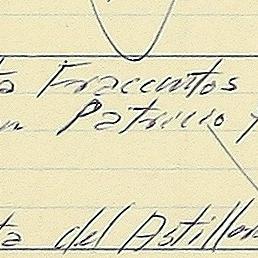 ta Fraccntos
n Patricio y
ta del Astillero